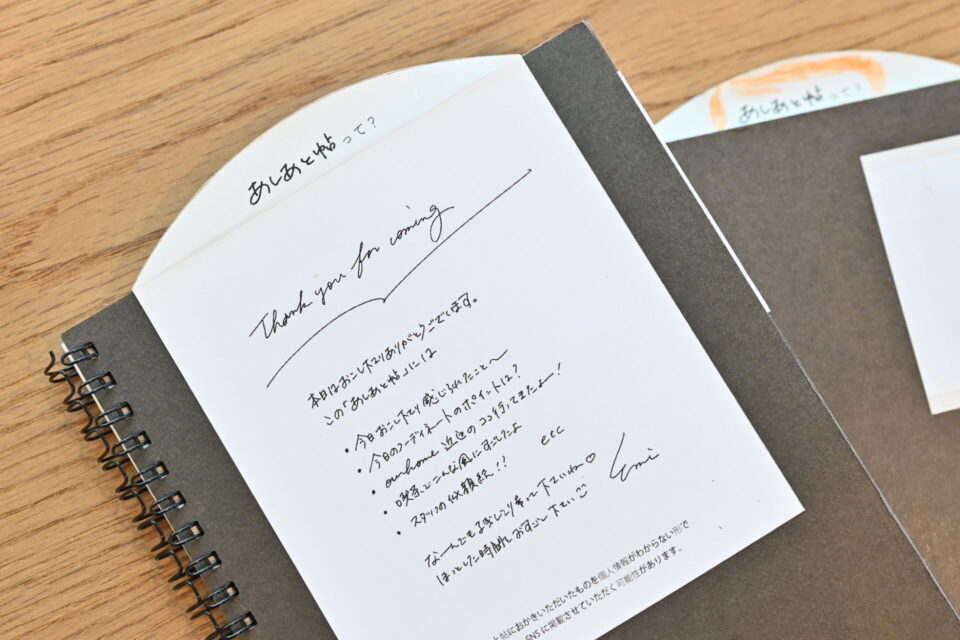 あしあと帖って?
Thank you for coming
本日はお越し下さりありがとうございます。
この「あしあと帖」には
・今日お越し下さり感じられたこと〜
・今日のコーディネートのポイントは?
・ourhome 近辺のココ行ってきたよー!
・喫茶でこんな風にすごしたよ
・スタッフの似顔絵!! etc
な〜んでもよきしるして下さいね♡
ほっとした時間をおすごし下さい
Emi
と帖におかきいただいたものを個人情報がわからない形で
SNSに掲載させていただく可能性があります。
あしあと帖って?